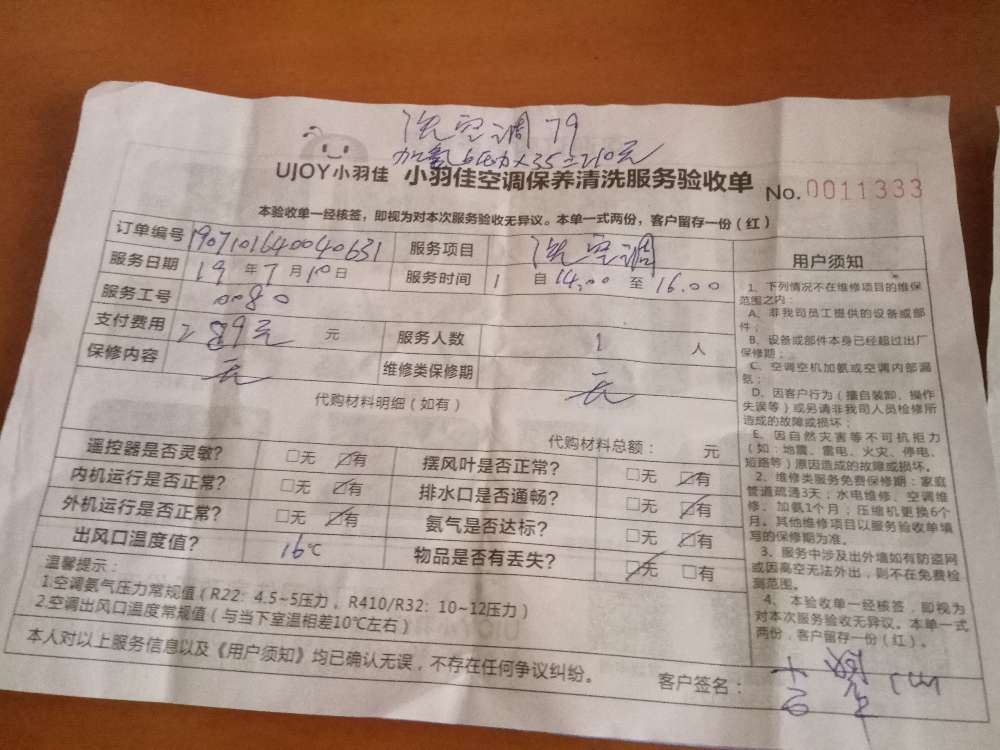 洗空调79
加氨6压力×35=210元
UJOY小羽佳 小羽佳空调保养清洗服务验收单 No.0011333
本验收单一经核签，即视为对本次服务验收无异议。本单一式两份，客户留存一份（红）
订单编号 1907101640040631 服务项目 洗空调
服务日期 19年7月10日 服务时间 1 自14:00至16.00
服务工号 0080
支付费用 289元 元 服务人数 1 人
保修内容 无 维修类保修期 无
代购材料明细（如有）
代购材料总额： 元
遥控器是否灵敏？ □无 ☑有 摆风叶是否正常？ □无 ☑有
内机运行是否正常？ □无 ☑有 排水口是否通畅？ □无 ☑有
外机运行是否正常？ □无 ☑有 氨气是否达标？ □无 ☑有
出风口温度值？ 16℃ 物品是否有丢失？ ☑无 □有
温馨提示：
1.空调氨气压力常规值（R22：4.5~5压力，R410/R32：10~12压力）
2.空调出风口温度常规值（与当下室温相差10℃左右）
本人对以上服务信息以及《用户须知》均已确认无误，不存在任何争议纠纷。
客户签名：
用户须知
1、下列情况不在维修项目的维保
范围之内：
A、非我司员工提供的设备或部
件；
B、设备或部件本身已经超过出厂
保修期；
C、空调空机加氨或空调内部漏
氨；
D、因客户行为（擅自装卸、操作
失误等）或另请非我司人员检修所
造成的故障或损坏；
E、因自然灾害等不可抗拒力
（如：地震、雷电、火灾、停电、
短路等）原因造成的故障或损坏。
2、维修类服务免费保修期：家庭
管道疏通3天；水电维修、空调维
修、加氨1个月；压缩机更换6个
月。其他维修项目以服务验收单填
写的保修期为准。
3、服务中涉及出外墙如有防盗网
或因高空无法外出，则不在免费检
测范围。
4、本验收单一经核签，即视为
对本次服务验收无异议。本单一式
两份，客户留存一份（红）。